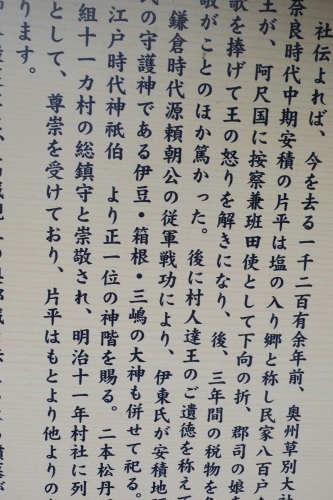 社伝よれば、今を去る一千二百有余年前、奥州草別大社
奈良時代中期安積の片平は塩の入り郷と称し民家八百戸
王が、阿尺国に按察兼班田使として下向の折、郡司の娘
歌を捧げて王の怒りを解きになり、後、三年間の税物を免
敬がことのほか篤かった。後に村人達王のご遺徳を称えて
鎌倉時代源頼朝公の従軍戦功により、伊東氏が安積地
氏の守護神である伊豆・箱根・三嶋の大神も併せて祀る。
江戸時代神祇伯　より正一位の神階を賜る。二本松丹
組十一カ村の総鎮守と崇敬され、明治十一年村社に列
として、尊崇を受けており、片平はもとより他よりの
ります。